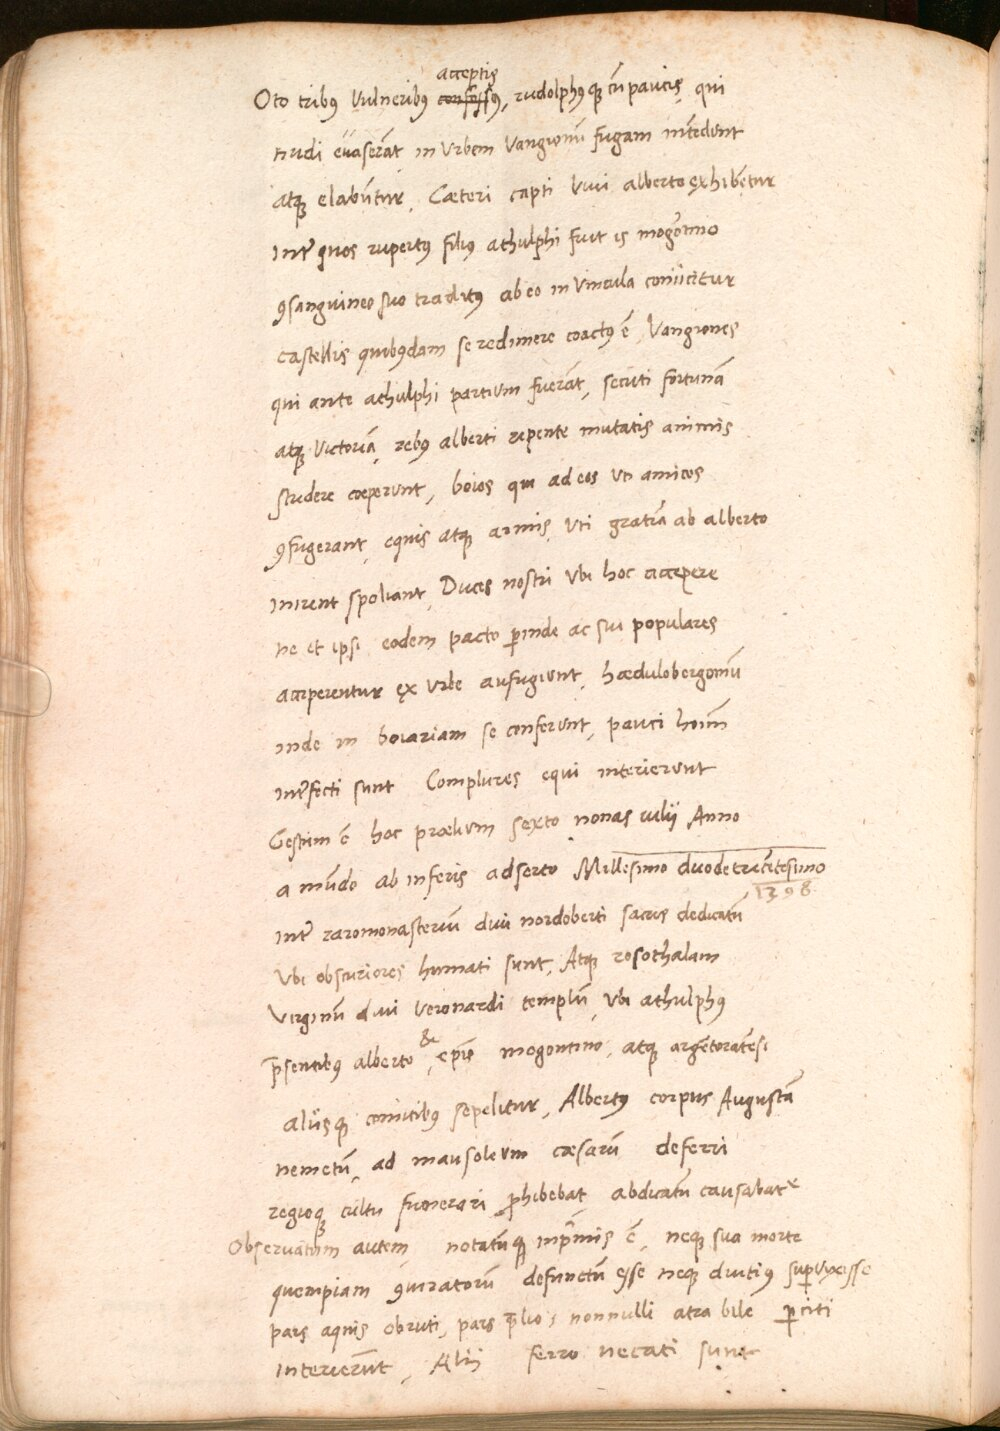 acceptis
Oto tribꝰ Vulneribꝰ confossꝰ, rudolphꝰqꝫ cū paucis, qui
nudi evaserāt in Vrbem Vangionū fugam intēdunt
atqꝫ elabūtur, Cæteri capti Vivi alberto exhibētur
Intꝰ quos rupertꝰ filiꝰ athulphi fuit is mogōtino
ꝯsanguineo suo traditꝰ ab eo in Vincula coniicitur
castellis quibꝰdam se redimere coactꝰ ē, Vangiones
qui ante athulphi partium fuerāt, secuti fortunā
atqꝫ Victoriā, rebꝰ alberti repente mutatis animis
studere cœperunt, boios qui ad eos uti amicos
ꝯfugerant, equis atqꝫ armis, uti gratiā ab alberto
inirent spoliant, Duces nostri ubi hoc accepere
ne et ipsi eodem pacto ꝑinde ac sui populares
acciperentur ex urbe aufugiunt, hædulobergomū
inde in boiariam se conferunt, pauci hoīm
intꝰfecti sunt Complures equi interierunt
Gestum ē hoc prœlium sexto nonas iulij Anno
a mūdo ab inferis adserto Millesimo duodetrecētesimo
1298
Intꝰ raromonasteriū divi nordoberti sacris dedicatū
Vbi obscuriores humati sunt, Atqꝫ rosothalam
Virginū divi Veronardi templū, Vbi athulphꝰ
p̄sentibꝰ alberto & ep̄is mogontino, atqꝫ argētoratēsi
aliisqꝫ comitibꝰ sepelitur, Albertꝰ corpus Augustā
nemetū, ad mausoleum cæsarū deferri
regioqꝫ cultu funerari ꝓhibebat, abdicatū causabatꝰ
Observatum autem, notatūqꝫ inp̄mis ē, neqꝫ sua morte
quempiam ꝯiuratorū defunctū esse neqꝫ diutiꝰ suꝑvixisse
pars aquis obruti, pars p̄lio, nonnulli atra bile ꝑciti
interierūt, Alij ferro necati sunt